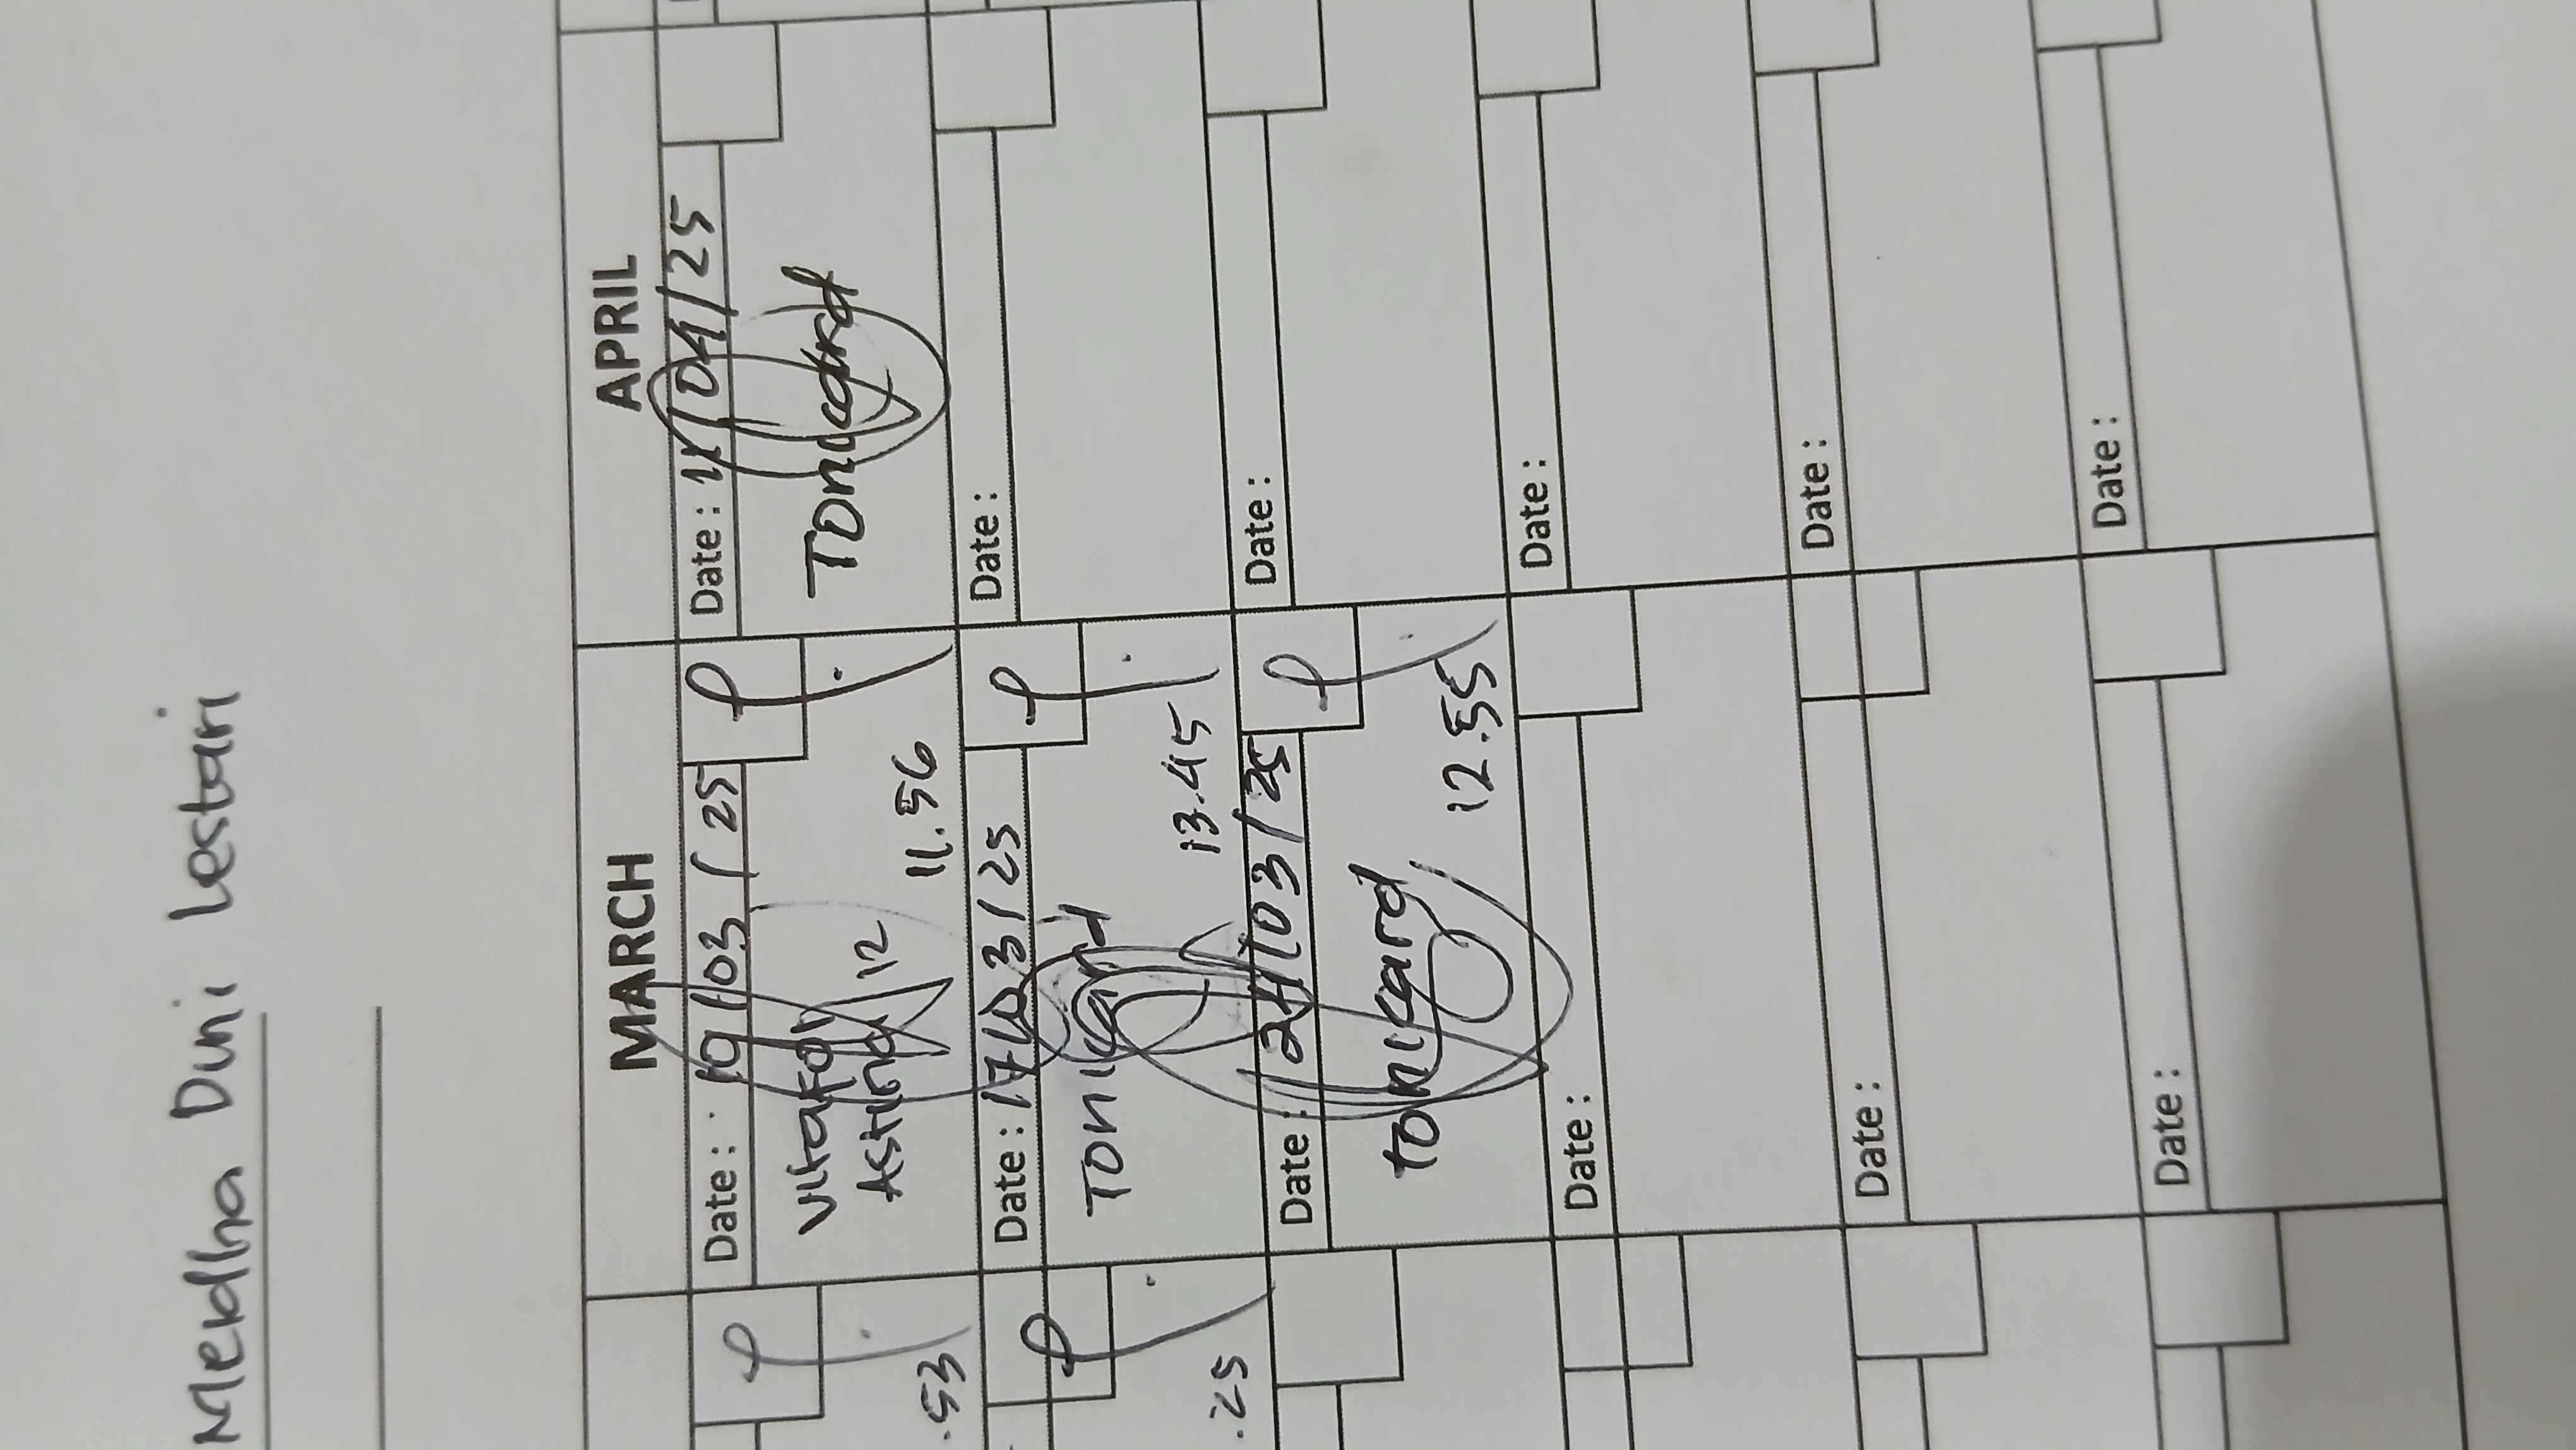 Meidha Dwi Lestari
MARCH
APRIL
Date : 19/03/25
Date : 11/04/25
Vitafol
Astina 12
Tonicard
11.56
.53
Date : 17/03/25
Date :
Tonicard
13.45
.25
Date : 24/03/25
Date :
tonicard
12.55
Date :
Date :
Date :
Date :
Date :
Date :